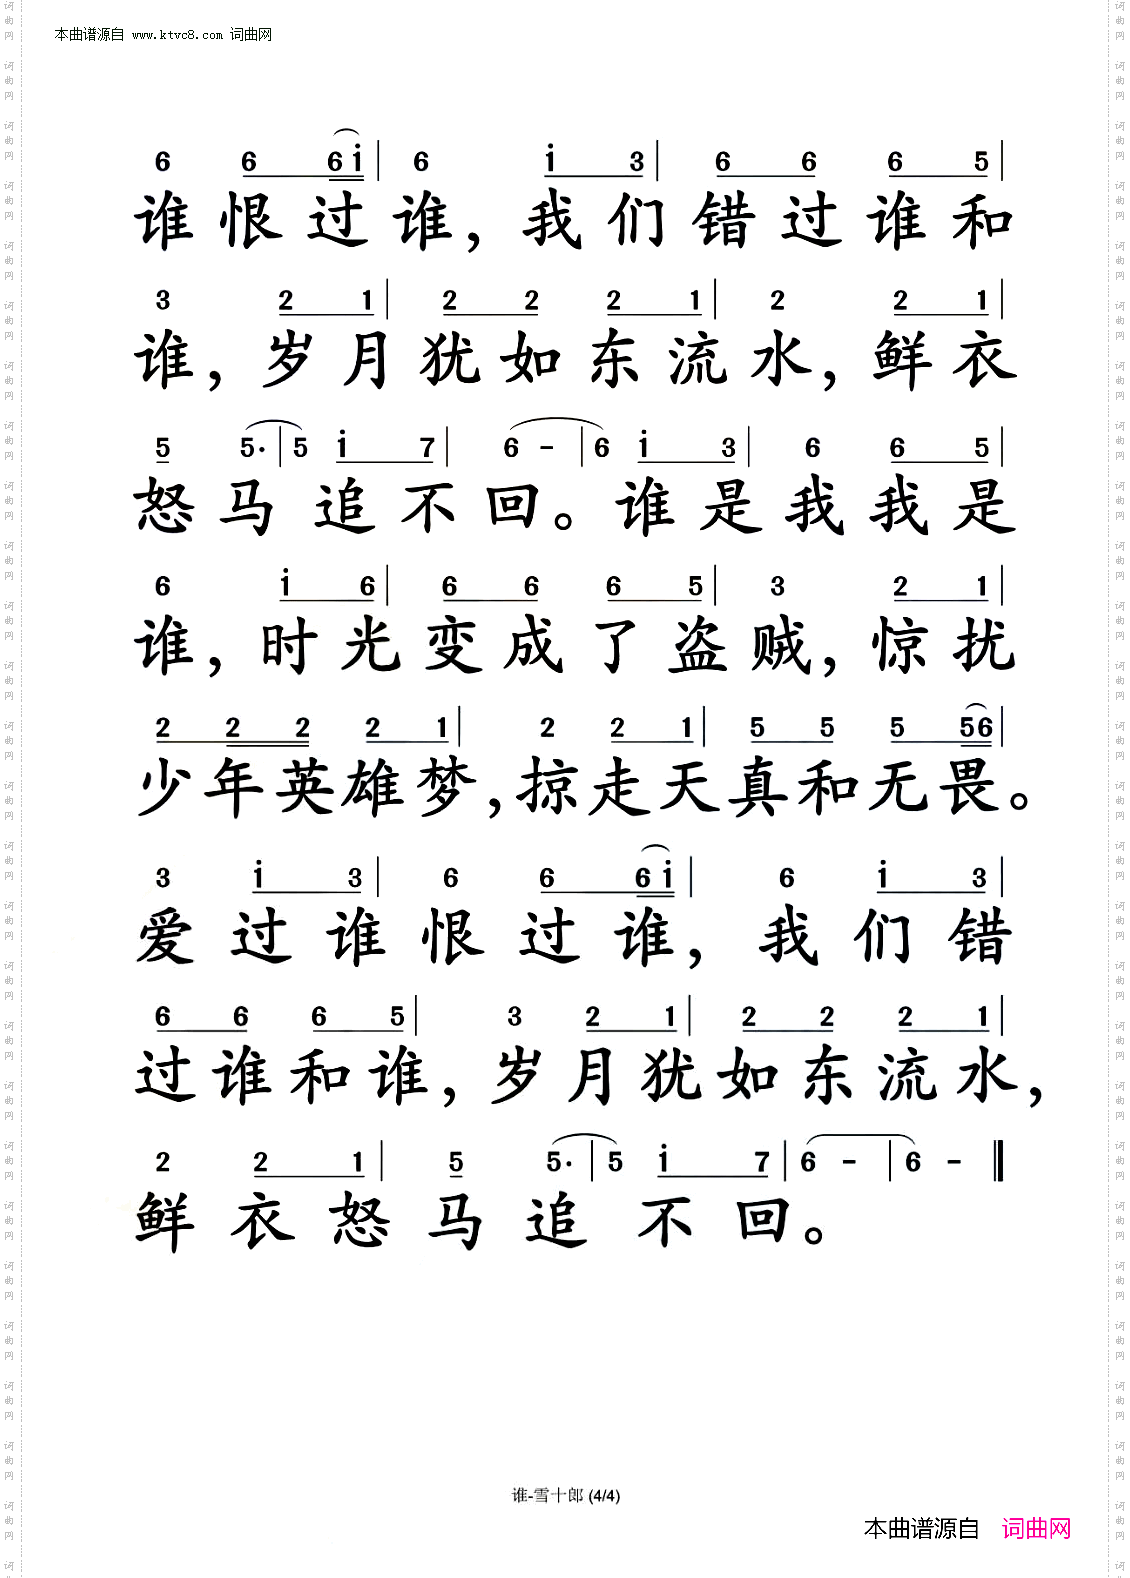 本曲谱源自 www.ktvc8.com 词曲网
6 6 6 i | 6 i 3 | 6 6 6 5 |
谁恨过谁，我们错过谁和
3 2 1 | 2 2 2 1 | 2 2 1 |
谁，岁月犹如东流水，鲜衣
5 5. | 5 i 7 | 6 - | 6 i 3 | 6 6 5 |
怒马追不回。谁是我我是
6 i 6 | 6 6 6 5 | 3 2 1 |
谁，时光变成了盗贼，惊扰
2 2 2 2 1 | 2 2 1 | 5 5 5 56 |
少年英雄梦，掠走天真和无畏。
3 i 3 | 6 6 6 i | 6 i 3 |
爱过谁恨过谁，我们错
6 6 6 5 | 3 2 1 | 2 2 2 1 |
过谁和谁，岁月犹如东流水，
2 2 1 | 5 5. | 5 i 7 | 6 - | 6 - ‖
鲜衣怒马追不回。
谁-雪十郎 (4/4)
本曲谱源自 词曲网